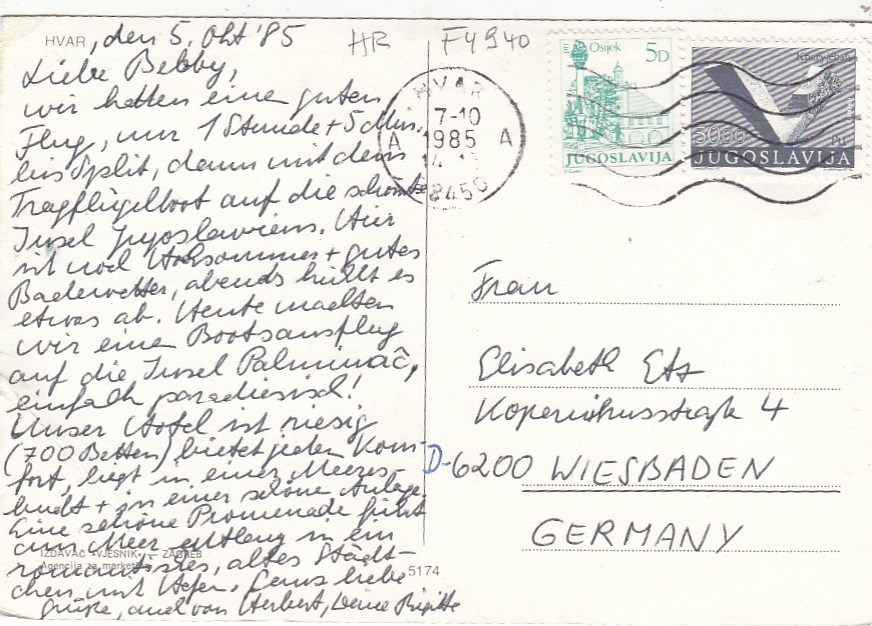 HVAR, den 5. Okt '85
HR F4940
Liebe Bebby,
wir hatten einen guten
Flug, nur 1 Stunde + 5 Min.
bis Split, dann mit dem
Tragflügelboot auf die schönste
Insel Jugoslawiens. Hier
ist noch Hochsommer + gutes
Badewetter, abends kühlt es
etwas ab. Heute machten
wir eine Bootsausflug
auf die Insel
einfach paradiesisch!
Unser Hotel ist riesig
(700 Betten) bietet jeden Kom-
fort, liegt in einer Meeres-
bucht + in einer schöne Anlage.
Eine schöne Promenade führt
am Meer entlang in ein
romantisches, altes Städt-
chen mit Hafen. Ganz liebe
Grüße, auch von Herbert, Deine Brigitte
IZDAVAČ VJESNIK — ZAGREB
Agencija za marketing
5174
HVAR
7-10
1985
A A
58450
Osijek
5D
JUGOSLAVIJA
JUGOSLAVIJA
Frau
Elisabeth Etz
Kopernikusstraße 4
D-6200 WIESBADEN
GERMANY